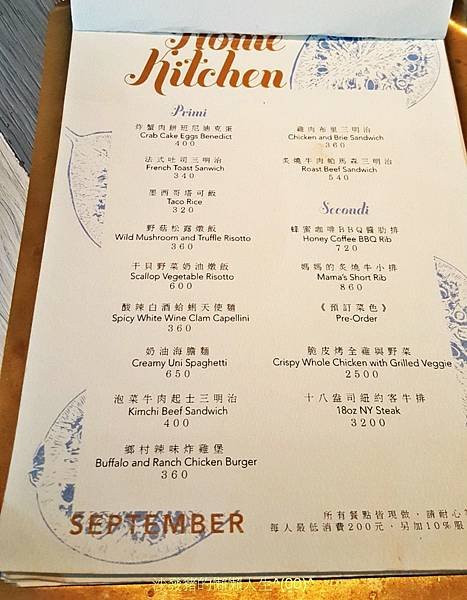 Home
Kitchen
Primi
炸蟹肉餅班尼迪克蛋
Crab Cake Eggs Benedict
400
法式吐司三明治
French Toast Sanwich
340
墨西哥塔可飯
Taco Rice
320
野菇松露燉飯
Wild Mushroom and Truffle Risotto
360
干貝野菜奶油燉飯
Scallop Vegetable Risotto
600
酸辣白酒蛤蜊天使麵
Spicy White Wine Clam Capellini
360
奶油海膽麵
Creamy Uni Spaghetti
650
泡菜牛肉起士三明治
Kimchi Beef Sandwich
400
鄉村辣味炸雞堡
Buffalo and Ranch Chicken Burger
360
雞肉布里三明治
Chicken and Brie Sandwich
360
炙燒牛肉帕馬森三明治
Roast Beef Sandwich
540
Secondi
蜂蜜咖啡BBQ醬肋排
Honey Coffee BBQ Rib
720
媽媽的炙燒牛小排
Mama's Short Rib
860
《預訂菜色》
Pre-Order
脆皮烤全雞與野菜
Crispy Whole Chicken with Grilled Veggie
2500
十八盎司紐約客牛排
18oz NY Steak
3200
SEPTEMBER
所有餐點皆現做，請耐心
每人最低消費200元，另加10%服